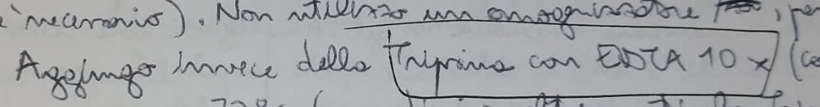 meccanico). Non utilizzo un omogenizzatore, per
Aggiungo invece della Tripsina con EDTA 10x (co